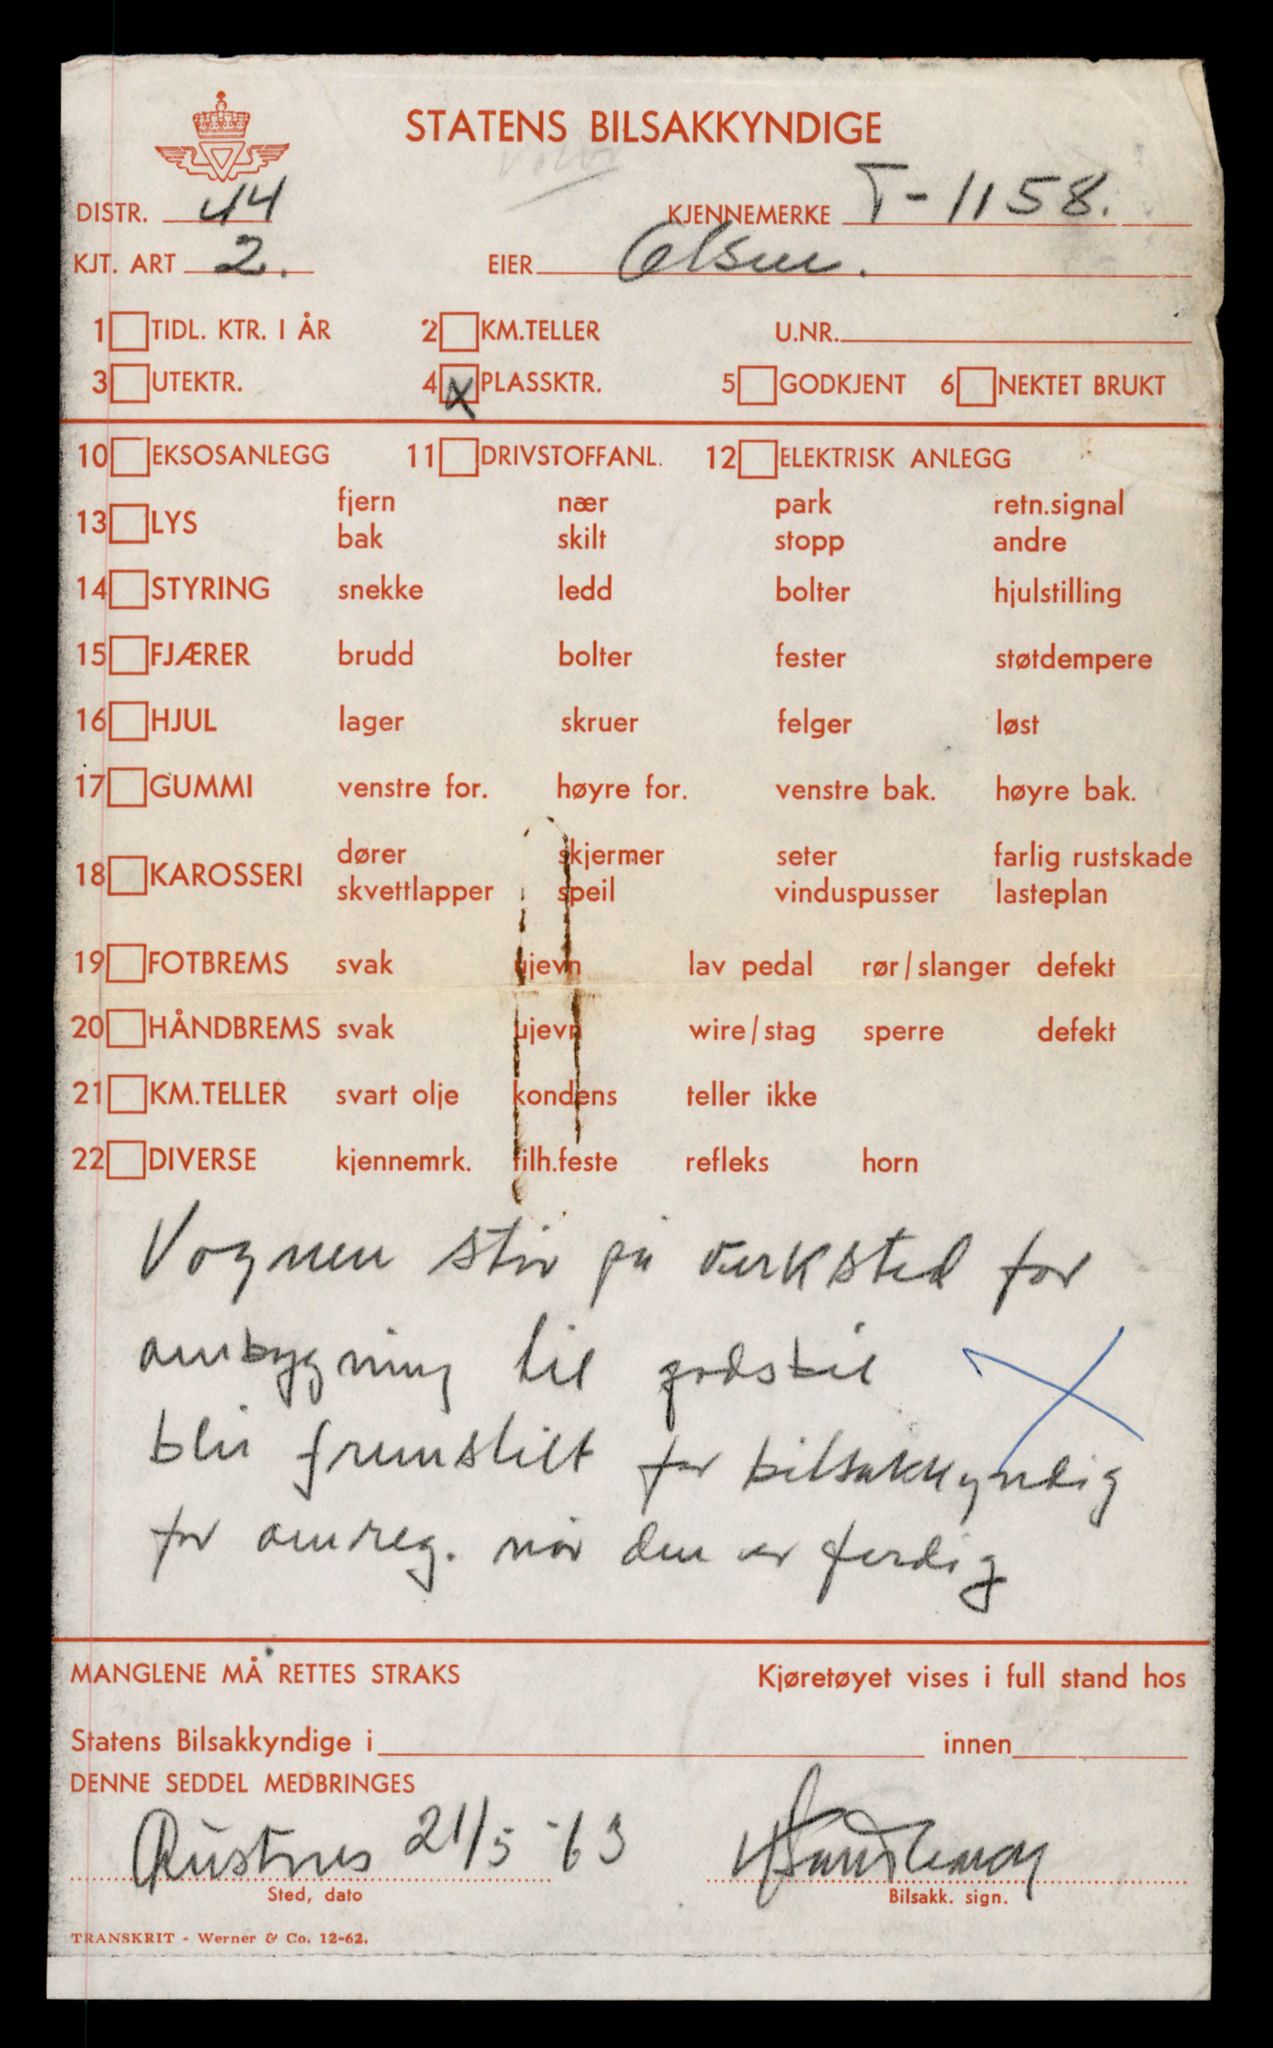 STATENS BILSAKKYNDIGE
Volvo
DISTR. 44 KJENNEMERKE T-1158.
KJT. ART 2. EIER Olsen.
1 TIDL. KTR. I ÅR 2 KM.TELLER U.NR.
3 UTEKTR. 4 X PLASSKTR. 5 GODKJENT 6 NEKTET BRUKT
10 EKSOSANLEGG 11 DRIVSTOFFANL. 12 ELEKTRISK ANLEGG
13 LYS fjern nær park retn.signal
bak skilt stopp andre
14 STYRING snekke ledd bolter hjulstilling
15 FJÆRER brudd bolter fester støtdempere
16 HJUL lager skruer felger løst
17 GUMMI venstre for. høyre for. venstre bak. høyre bak.
18 KAROSSERI dører skjermer seter farlig rustskade
skvettlapper speil vinduspusser lasteplan
19 FOTBREMS svak ujevn lav pedal rør/slanger defekt
20 HÅNDBREMS svak ujevn wire/stag sperre defekt
21 KM.TELLER svart olje kondens teller ikke
22 DIVERSE kjennemrk. tilh.feste refleks horn
Vognen står på verksted for
ombygning til godsbil
blir fremstilt for bilsakkyndig
for omreg. når den er ferdig
MANGLENE MÅ RETTES STRAKS Kjøretøyet vises i full stand hos
Statens Bilsakkyndige i innen
DENNE SEDDEL MEDBRINGES
21/5-63
Sted, dato Bilsakk. sign.
TRANSKRIT - Werner & Co. 12-62.